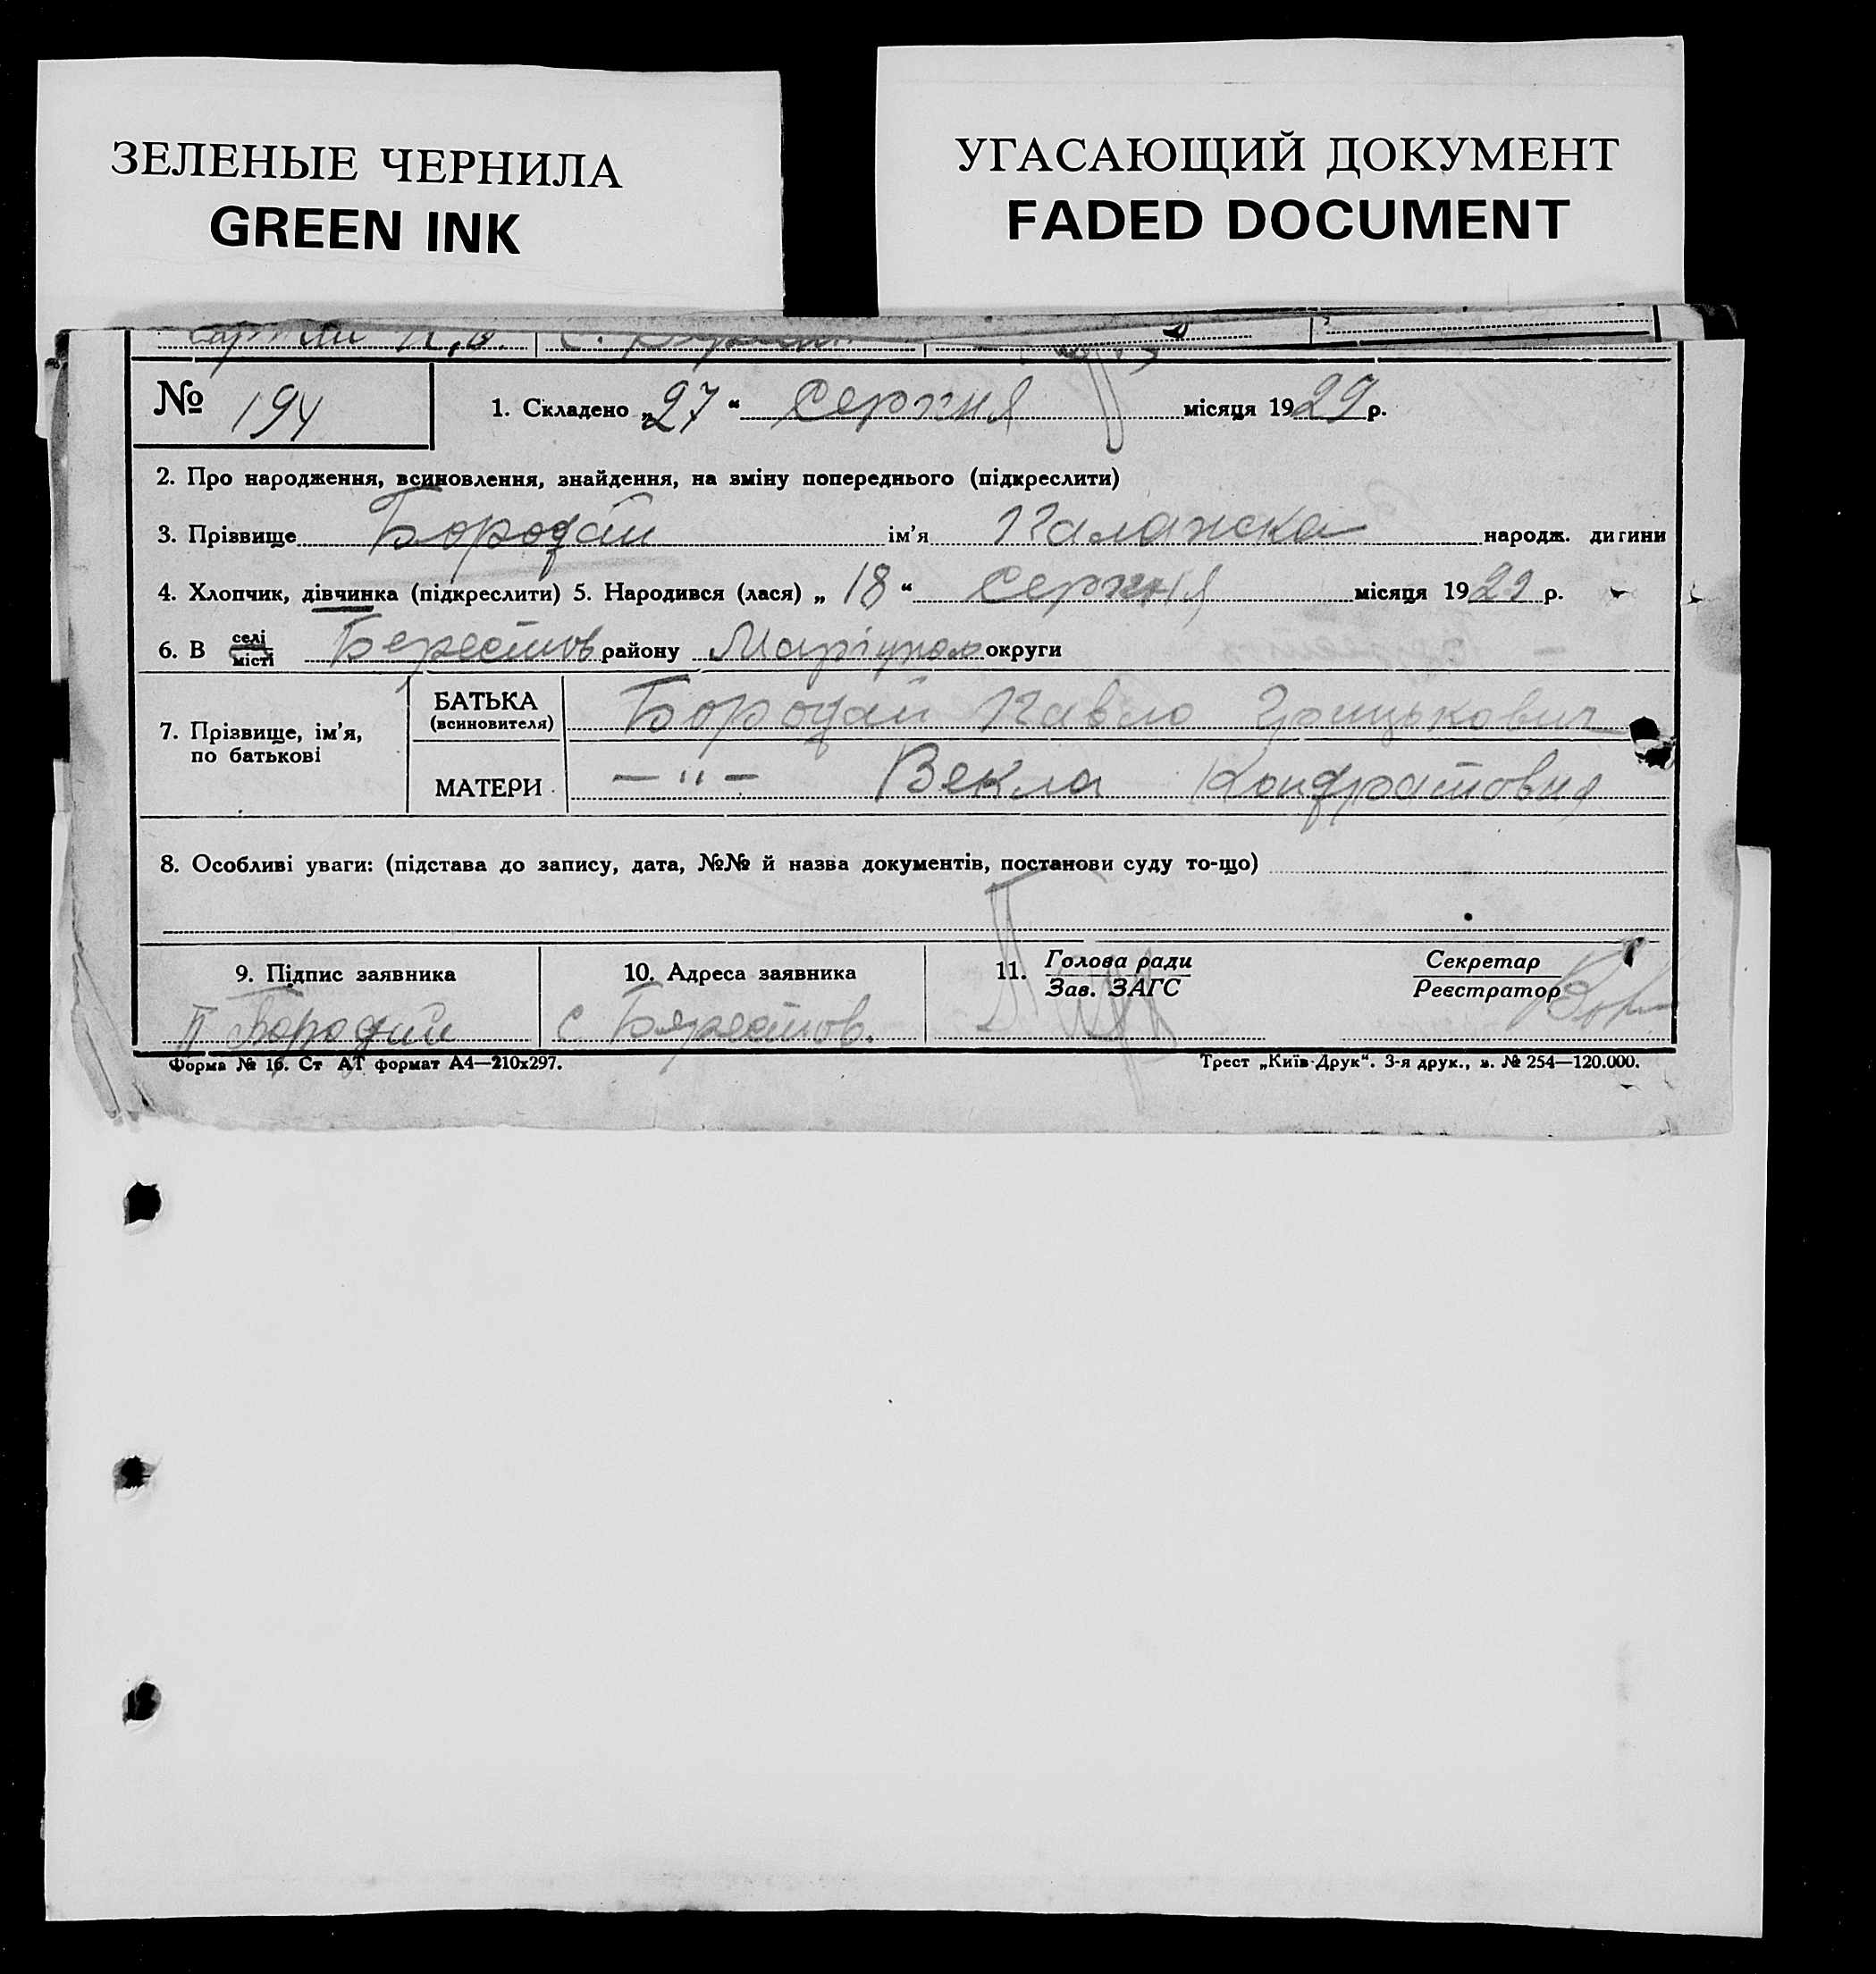 ЗЕЛЕНЫЕ ЧЕРНИЛА
GREEN INK
УГАСАЮЩИЙ ДОКУМЕНТ
FADED DOCUMENT
№ 194 1. Складено „27“ серпня місяця 1929 р.
2. Про народження, всиновлення, знайдення, на зміну попереднього (підкреслити)
3. Прізвище Бородай ім’я Палажка народж. дитини
4. Хлопчик, дівчинка (підкреслити) 5. Народився (лася) „18“ серпня місяця 1929 р.
6. В селі місті Берестов району Маріупол округи
7. Прізвище, ім’я, по батькові
БАТЬКА (всиновителя) Бородай Павло Грицькович
МАТЕРИ — " — Векла Кондратовна
8. Особливі уваги: (підстава до запису, дата, №№ й назва документів, постанови суду то-що)
9. Підпис заявника 10. Адреса заявника 11. Голова ради Зав. ЗАГС Секретар Реєстратор
П Бородай с Берестов.
Форма № 16. Ст АТ формат А4—210х297. Трест „Київ-Друк“. 3-я друк., з. № 254—120.000.